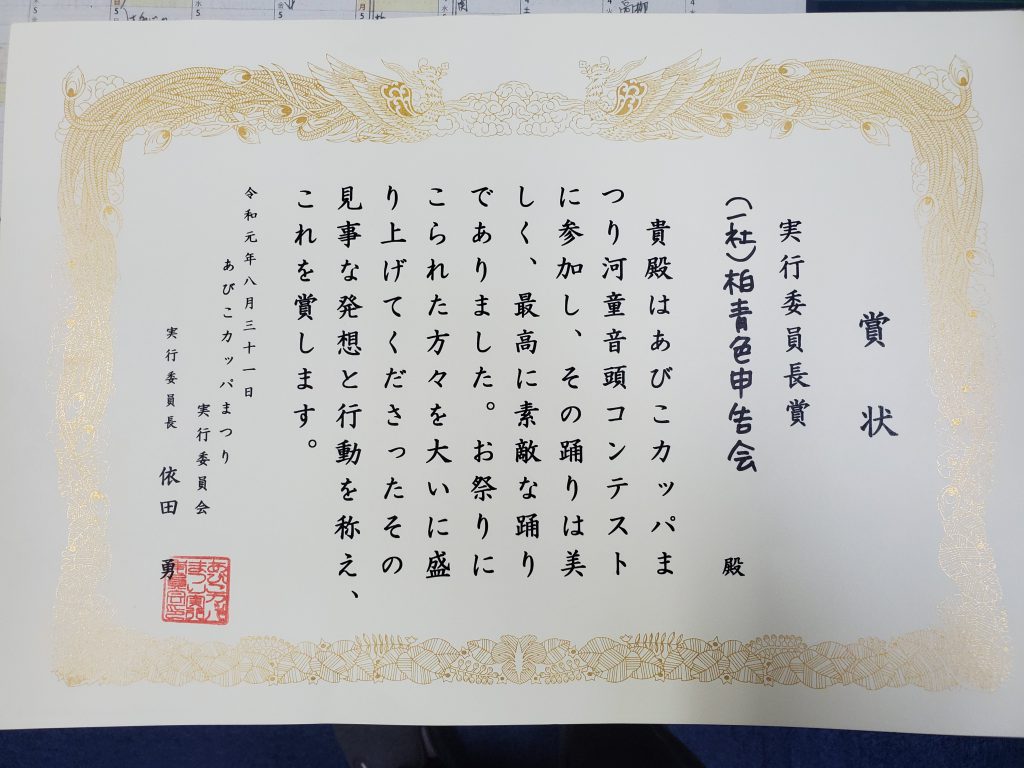 賞状
実行委員長賞
（一社）柏青色申告会 殿
貴殿はあびこカッパま
つり河童音頭コンテスト
に参加し、その踊りは美
しく、最高に素敵な踊り
でありました。お祭りに
こられた方々を大いに盛
り上げてくださったその
見事な発想と行動を称え、
これを賞します。
令和元年八月三十一日
あびこカッパまつり
実行委員会
実行委員長 依田 勇